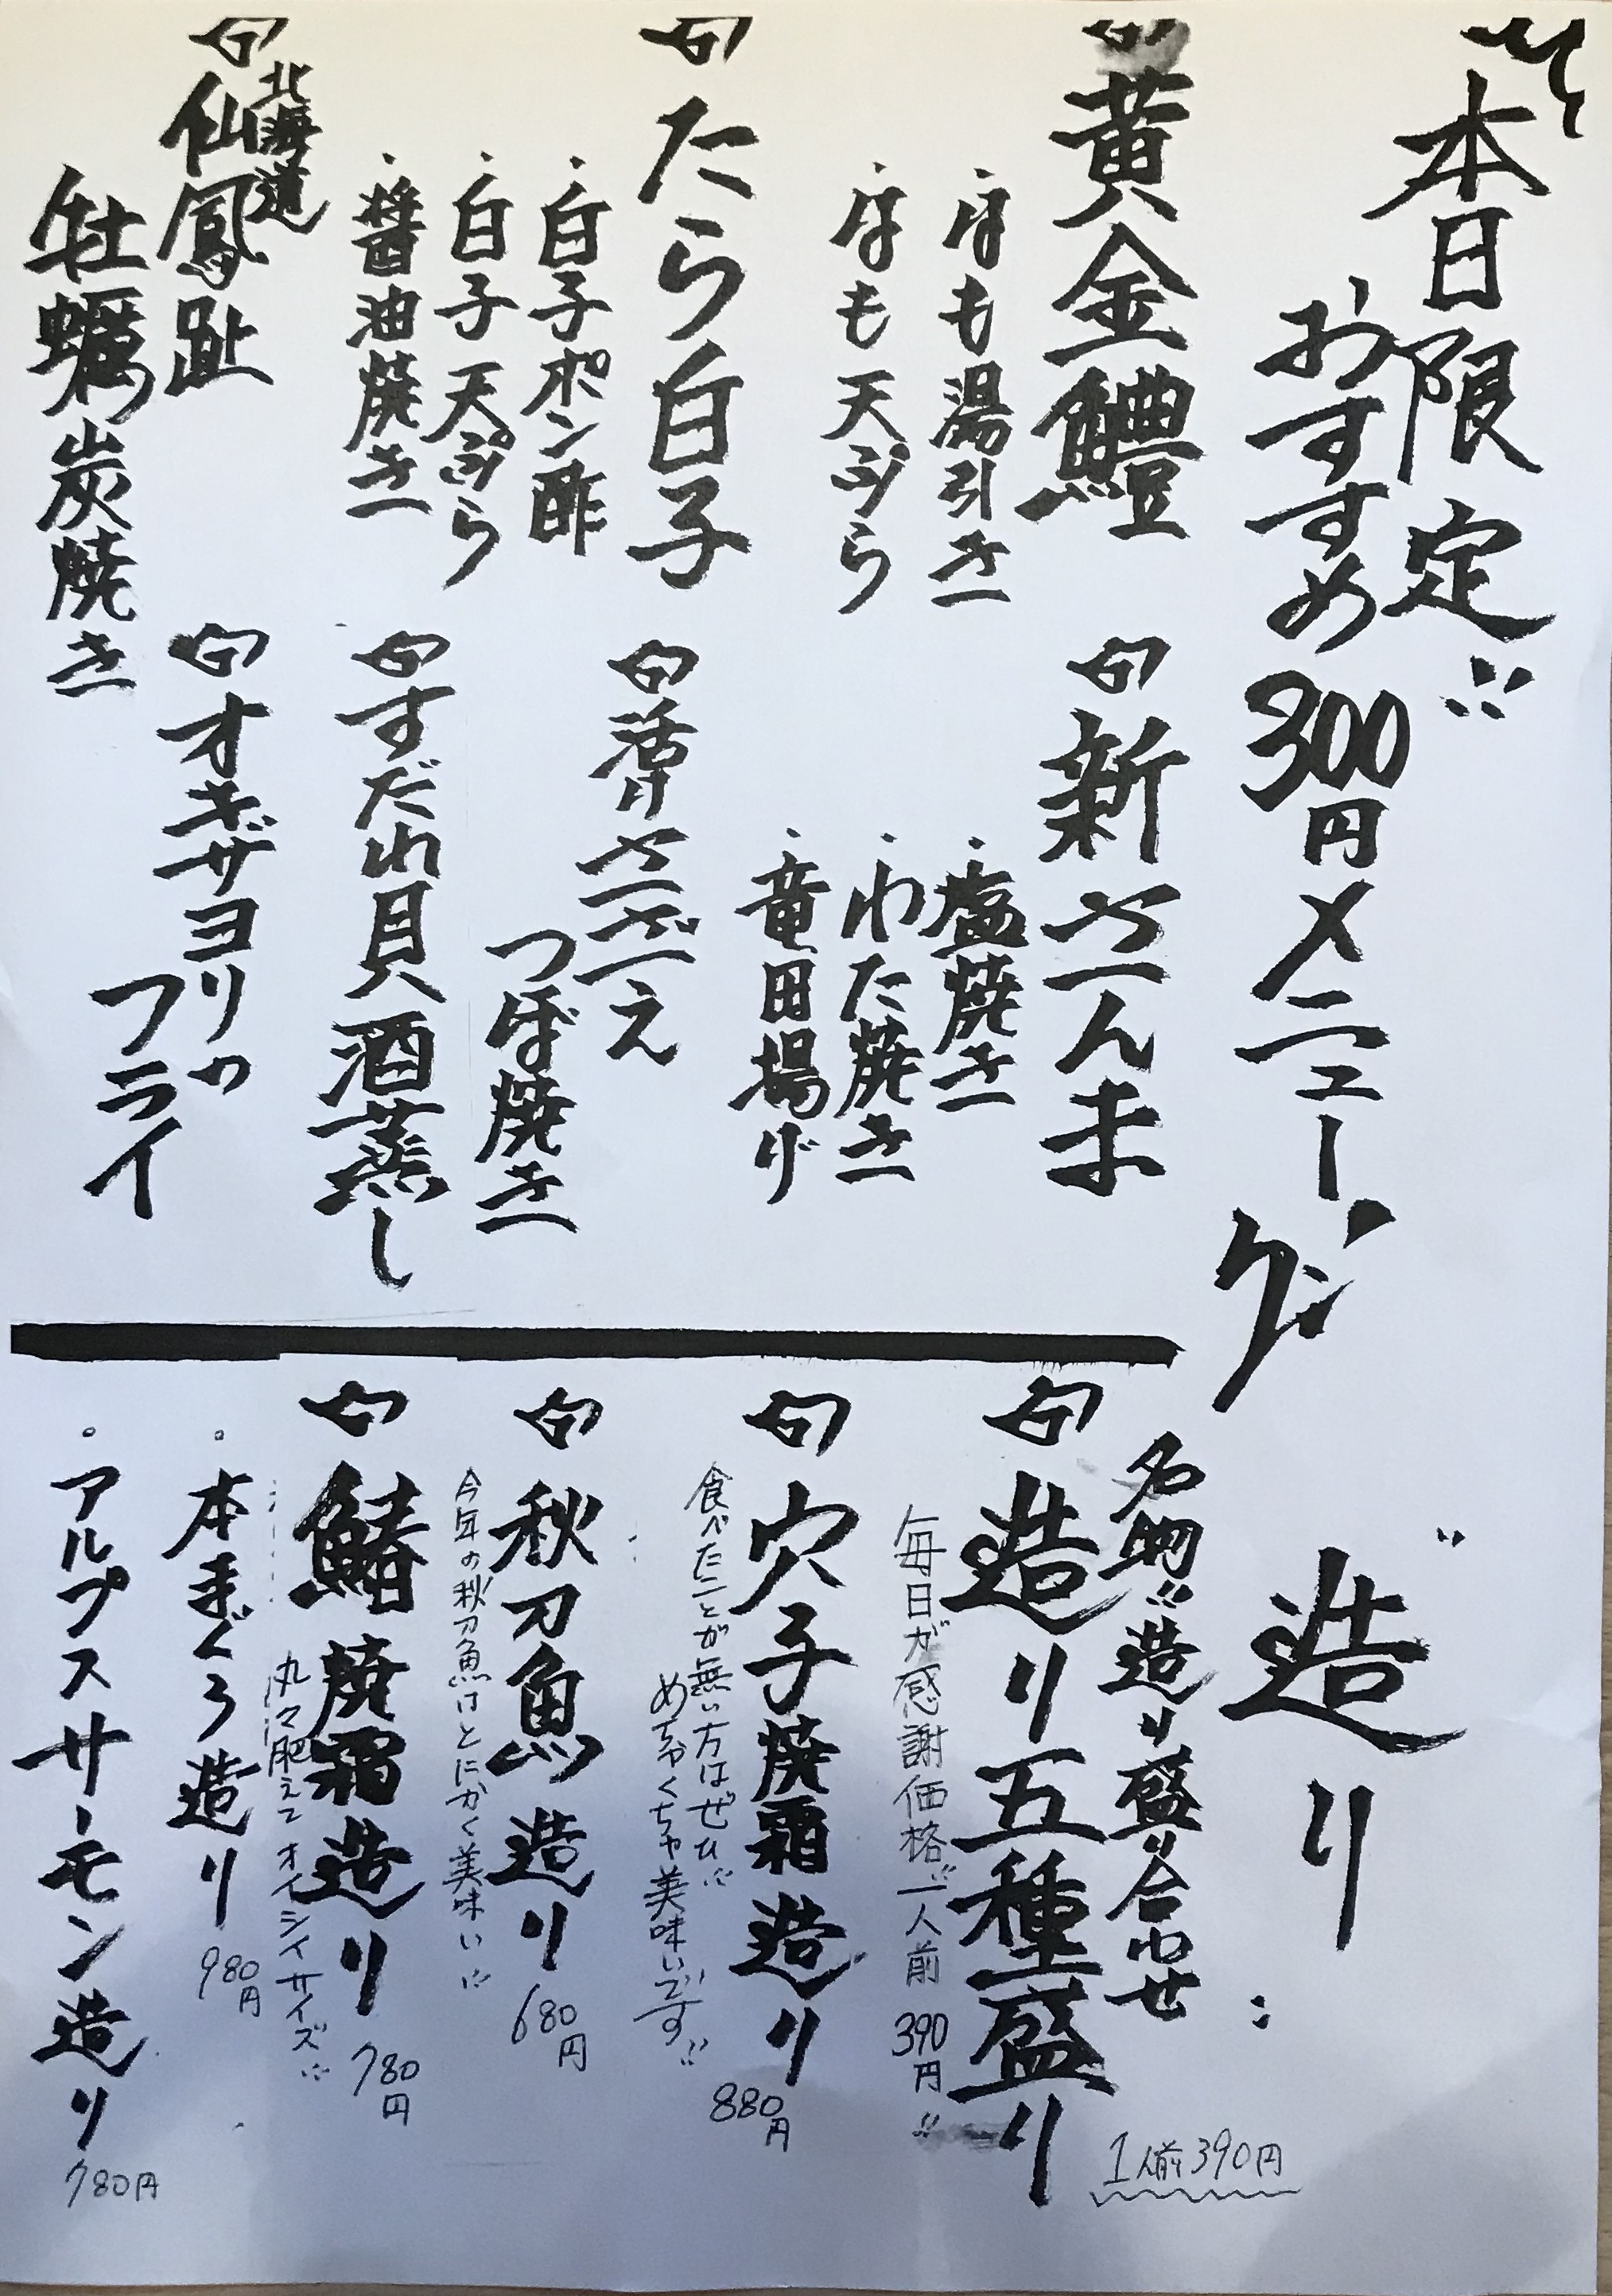 本日限定!!
おすすめ300円メニュー
旬黄金鱧
・はも湯引き
・はも天ぷら
旬たら白子
・白子ポン酢
・白子天ぷら
・醤油焼き
旬北海道
仙鳳趾
牡蠣炭焼き
旬新さんま
・塩焼き
・わた焼き
・竜田揚げ
旬活けさざえ
つぼ焼き
旬すだれ貝酒蒸し
旬オキザヨリの
フライ
造り
名物!!造り盛り合わせ
1人前390円
旬造り五種盛り
毎日が感謝価格!!一人前390円!!
旬穴子焼霜造り 880円
食べたことが無い方はぜひ!!
めちゃくちゃ美味いです!!
旬秋刀魚造り 680円
今年の秋刀魚はとにかく美味い!!
旬鰆焼霜造り 780円
丸々肥えてオイシイサイズ!!
・本まぐろ造り 980円
・アルプスサーモン造り 780円